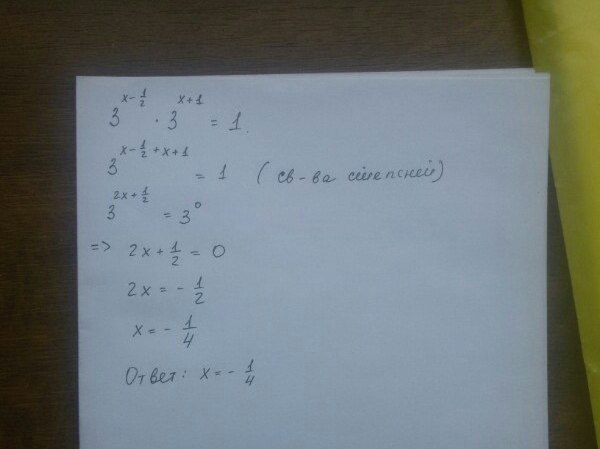 3^{x - 1/2} · 3^{x+1} = 1.
3^{x - 1/2 + x + 1} = 1 (св-ва степеней)
3^{2x + 1/2} = 3^0
=> 2x + 1/2 = 0
2x = - 1/2
x = - 1/4
Ответ: x = - 1/4